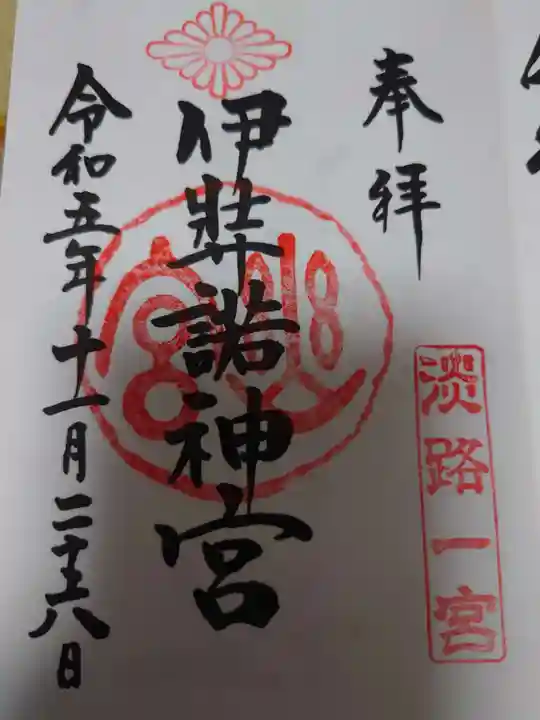 奉拝
淡路一宮
伊弉諾神宮
令和五年十一月二十八日